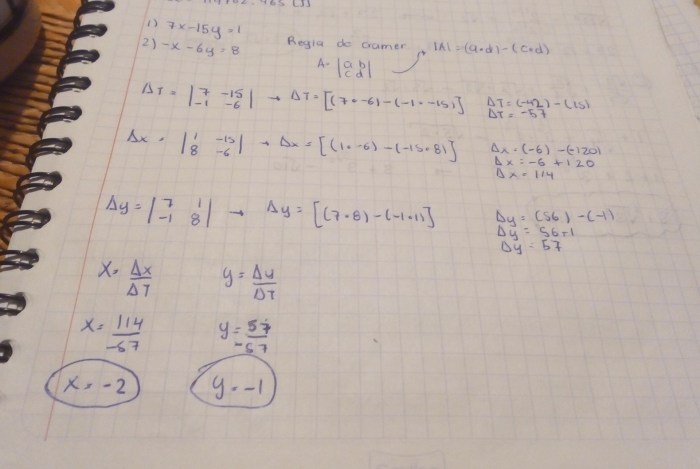 1) 7x-15y=1
2) -x -6y=8
Regla de cramer |A|=(a•d)-(c•d)
A= |a b|
|c d|
ΔT = |7 -15| → ΔT=[(7•-6)-(-1•-15)] ΔT=(-42)-(15)
|-1 -6| ΔT=-57
Δx = |1 -15| → Δx=[(1•-6)-(-15•8)] Δx=(-6)-(-120)
|8 -6| Δx=-6+120
Δx=114
Δy= |7 1| → Δy=[(7•8)-(-1•1)] Δy=(56)-(-1)
|-1 8| Δy=56+1
Δy=57
X=Δx/ΔT y=Δy/ΔT
x=114/-57 y=57/-57
x=-2 y=-1